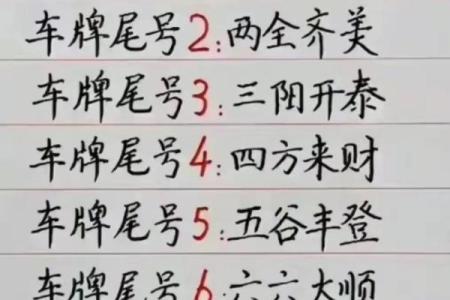 车牌尾号2:两全齐美
车牌尾号3:三阳开泰
车牌尾号4:四方来财
车牌尾号5:五谷丰登
车牌尾号6:六六大顺